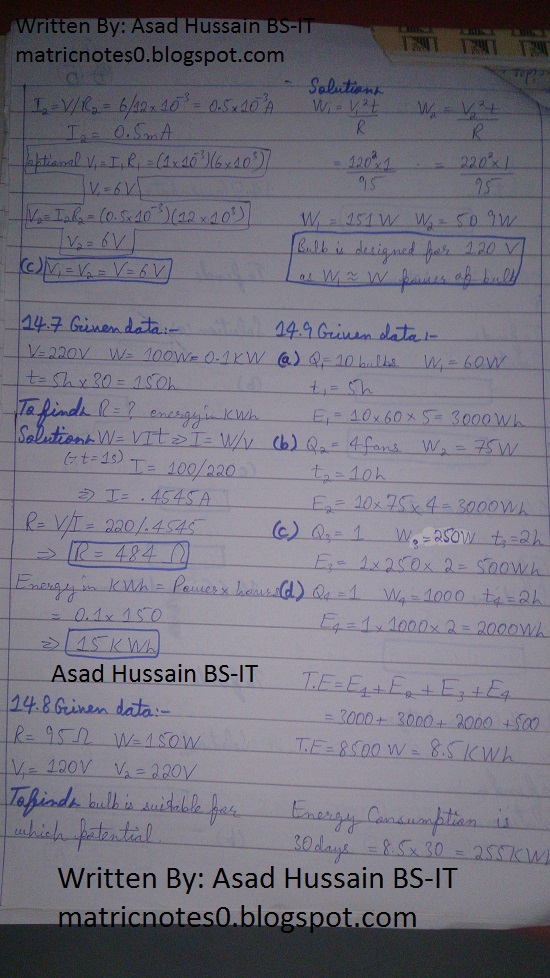 Written By: Asad Hussain BS-IT
matricnotes0.blogspot.com
I₂ = V/R₂ = 6/12×10⁻³ = 0.5×10⁻³A
I₂ = 0.5mA
optional V₁ = I₁R₁ = (1×10⁻³)(6×10³)
V₁ = 6V
V₂ = I₂R₂ = (0.5×10⁻³)(12×10³)
V₂ = 6V
(c) V₁ = V₂ = V = 6V
14.7 Given data:-
V = 220V W = 100W = 0.1KW
t = 5h × 30 = 150h
To find:- R = ? energy in KWh
Solution:- W = VIt ⇒ I = W/V
(∵ t = 1s) I = 100/220
⇒ I = .4545A
R = V/I = 220/.4545
⇒ R = 484 Ω
Energy in KWh = Power × hours
= 0.1 × 150
⇒ 15 KWh
Asad Hussain BS-IT
14.8 Given data:-
R = 95Ω W = 150W
V₁ = 120V V₂ = 220V
To find:- bulb is suitable for
which potential.
Solution:-
W₁ = V₁²t/R W₂ = V₂²t/R
= 120²×1/95 = 220²×1/95
W₁ = 151W W₂ = 509W
Bulb is designed for 120 V
as W₁ ≈ W power of bulb
14.9 Given data:-
(a) Q₁ = 10 bulbs W₁ = 60W
t₁ = 5h
E₁ = 10×60×5 = 3000Wh
(b) Q₂ = 4 fans W₂ = 75W
t₂ = 10h
E₂ = 10×75×4 = 3000Wh
(c) Q₃ = 1 W₃ = 250W t₃ = 2h
E₃ = 1×250×2 = 500Wh
(d) Q₄ = 1 W₄ = 1000 t₄ = 2h
E₄ = 1×1000×2 = 2000Wh
T.E = E₁ + E₂ + E₃ + E₄
= 3000 + 3000 + 2000 + 500
T.E = 8500 W = 8.5 KWh
Energy Consumption is
30 days = 8.5 × 30 = 255KW
Written By: Asad Hussain BS-IT
matricnotes0.blogspot.com